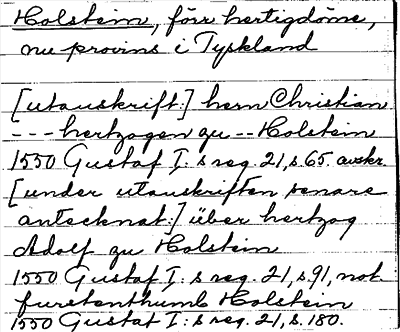 Holstein, förr hertigdöme,
nu provins i Tyskland
[utanskrift:] hern Christian
--- hertzogen zu -- Holstein
1550 Gustaf I:s reg. 21, s. 65. avskr.
[under utanskriften senare
antecknat:] über hertzog
Adolf zu Holstein
1550 Gustaf I:s reg. 21, s 91, not.
furstenthumb Holstein
1550 Gustaf I:s reg. 21, s. 180.